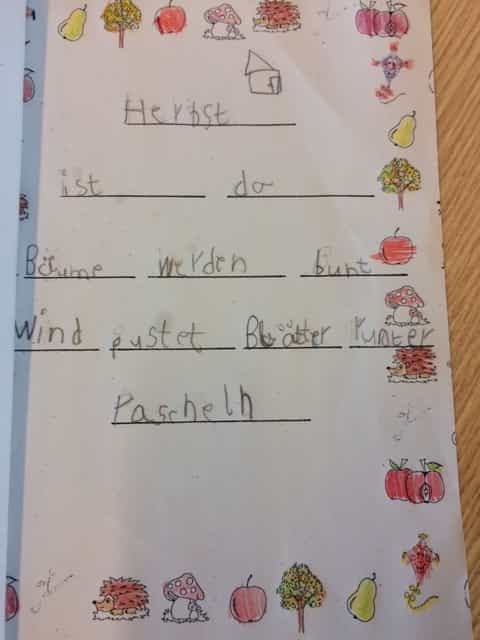 Herbst
ist da
Bäume werden bunt
Wind pustet Blätter runter
Rascheln